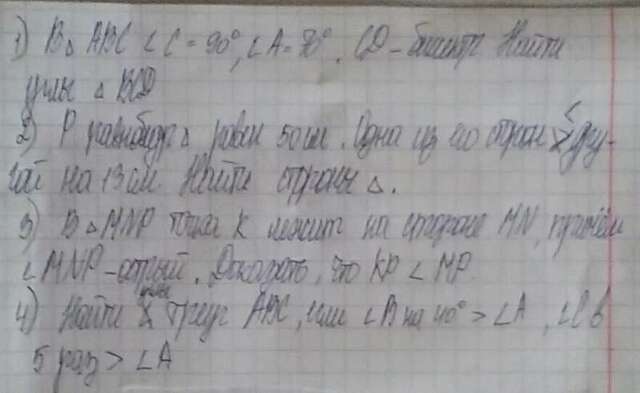 1) В △ ABC ∠C = 90°, ∠A = 70°. CD – биссектр Найти
углы △ BCD
2) P равнобедр △ равен 50 см. Одна из его сторон > < дру-
гой на 13 см. Найти стороны △.
3) В △ MNP точка K лежит на стороне MN, причём
∠ MNP – острый. Доказать, что KP < MP.
4) Найти углы треуг ABC, если ∠B на 40° > ∠A, ∠C в
5 раз > ∠A